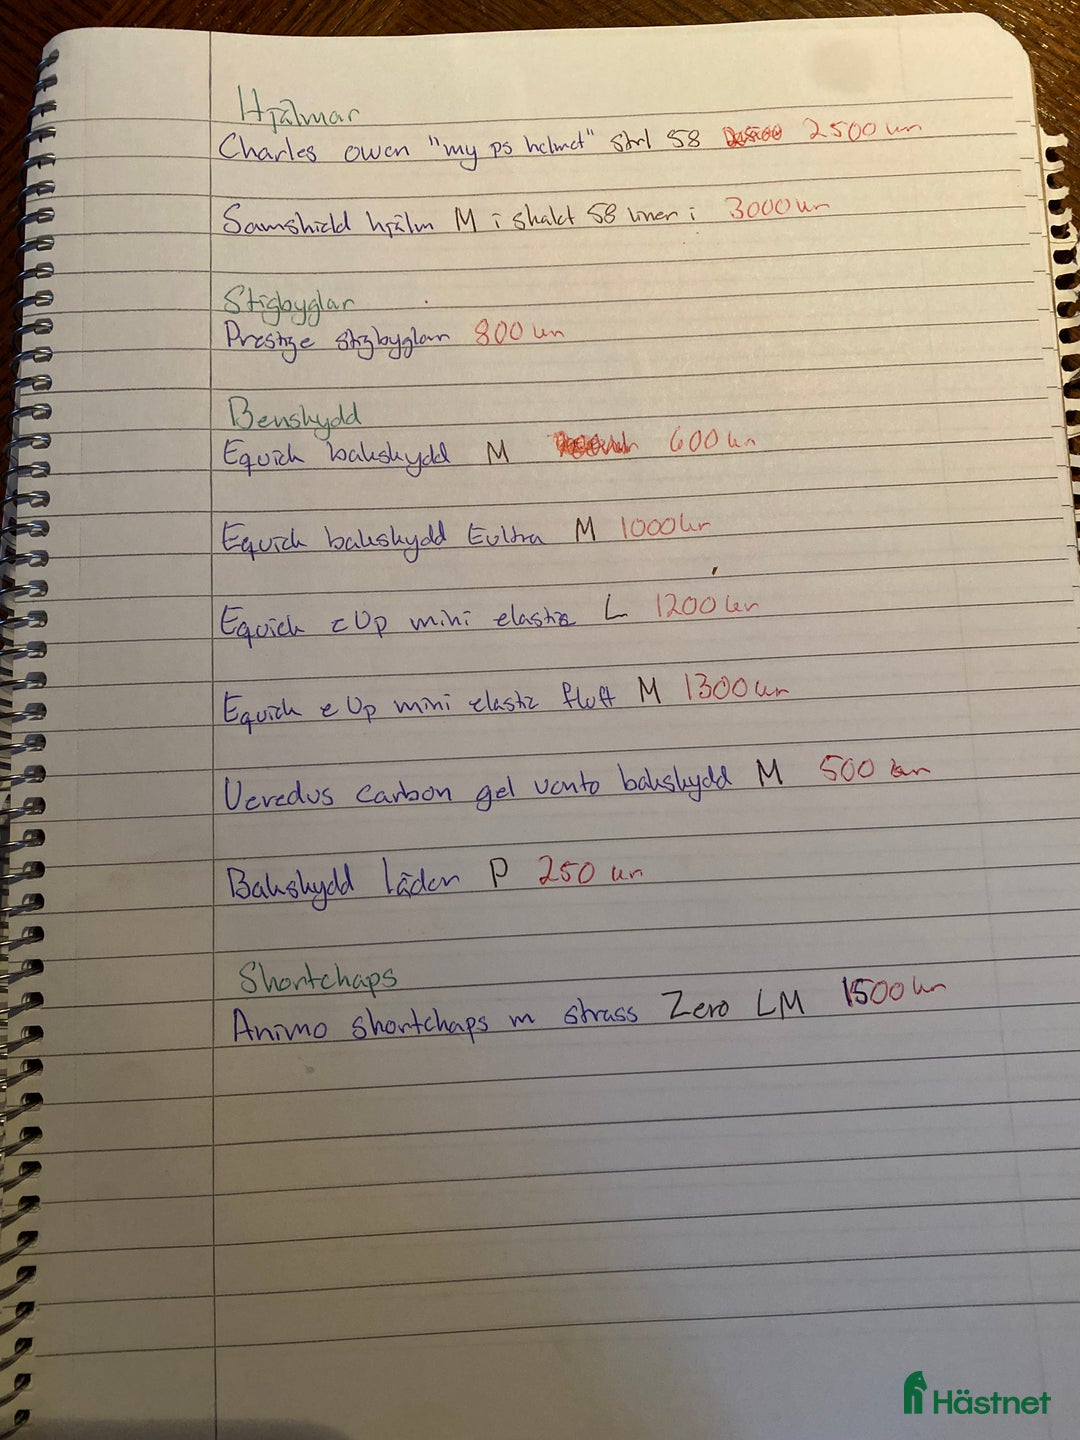 Hjälmar
Charles owen "my ps helmet" strl 58 2500 kr
Samshield hjälm M i skalet 58 liner i 3000 kr
Stigbyglar
Prestige stigbyglar 800 kr
Benskydd
Equick bakskydd M 600 kr
Equick bakskydd Eultra M 1000 kr
Equick eUp mini elastic L 1200 kr
Equick eUp mini elastic fluff M 1300 kr
Veredus carbon gel vento bakskydd M 500 kr
Bakskydd läder P 250 kr
Shortchaps
Animo shortchaps m strass Zero LM 1500 kr
Hästnet